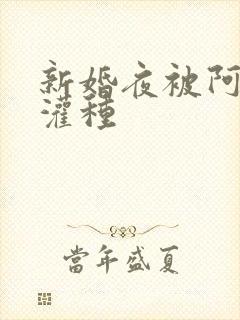 新婚夜被阿
灌種
當年盛夏